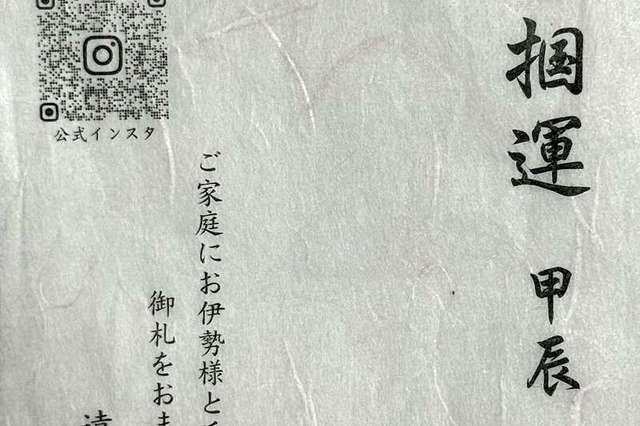 掴運 甲辰
ご家庭にお伊勢様と
御札をおま
公式インスタ